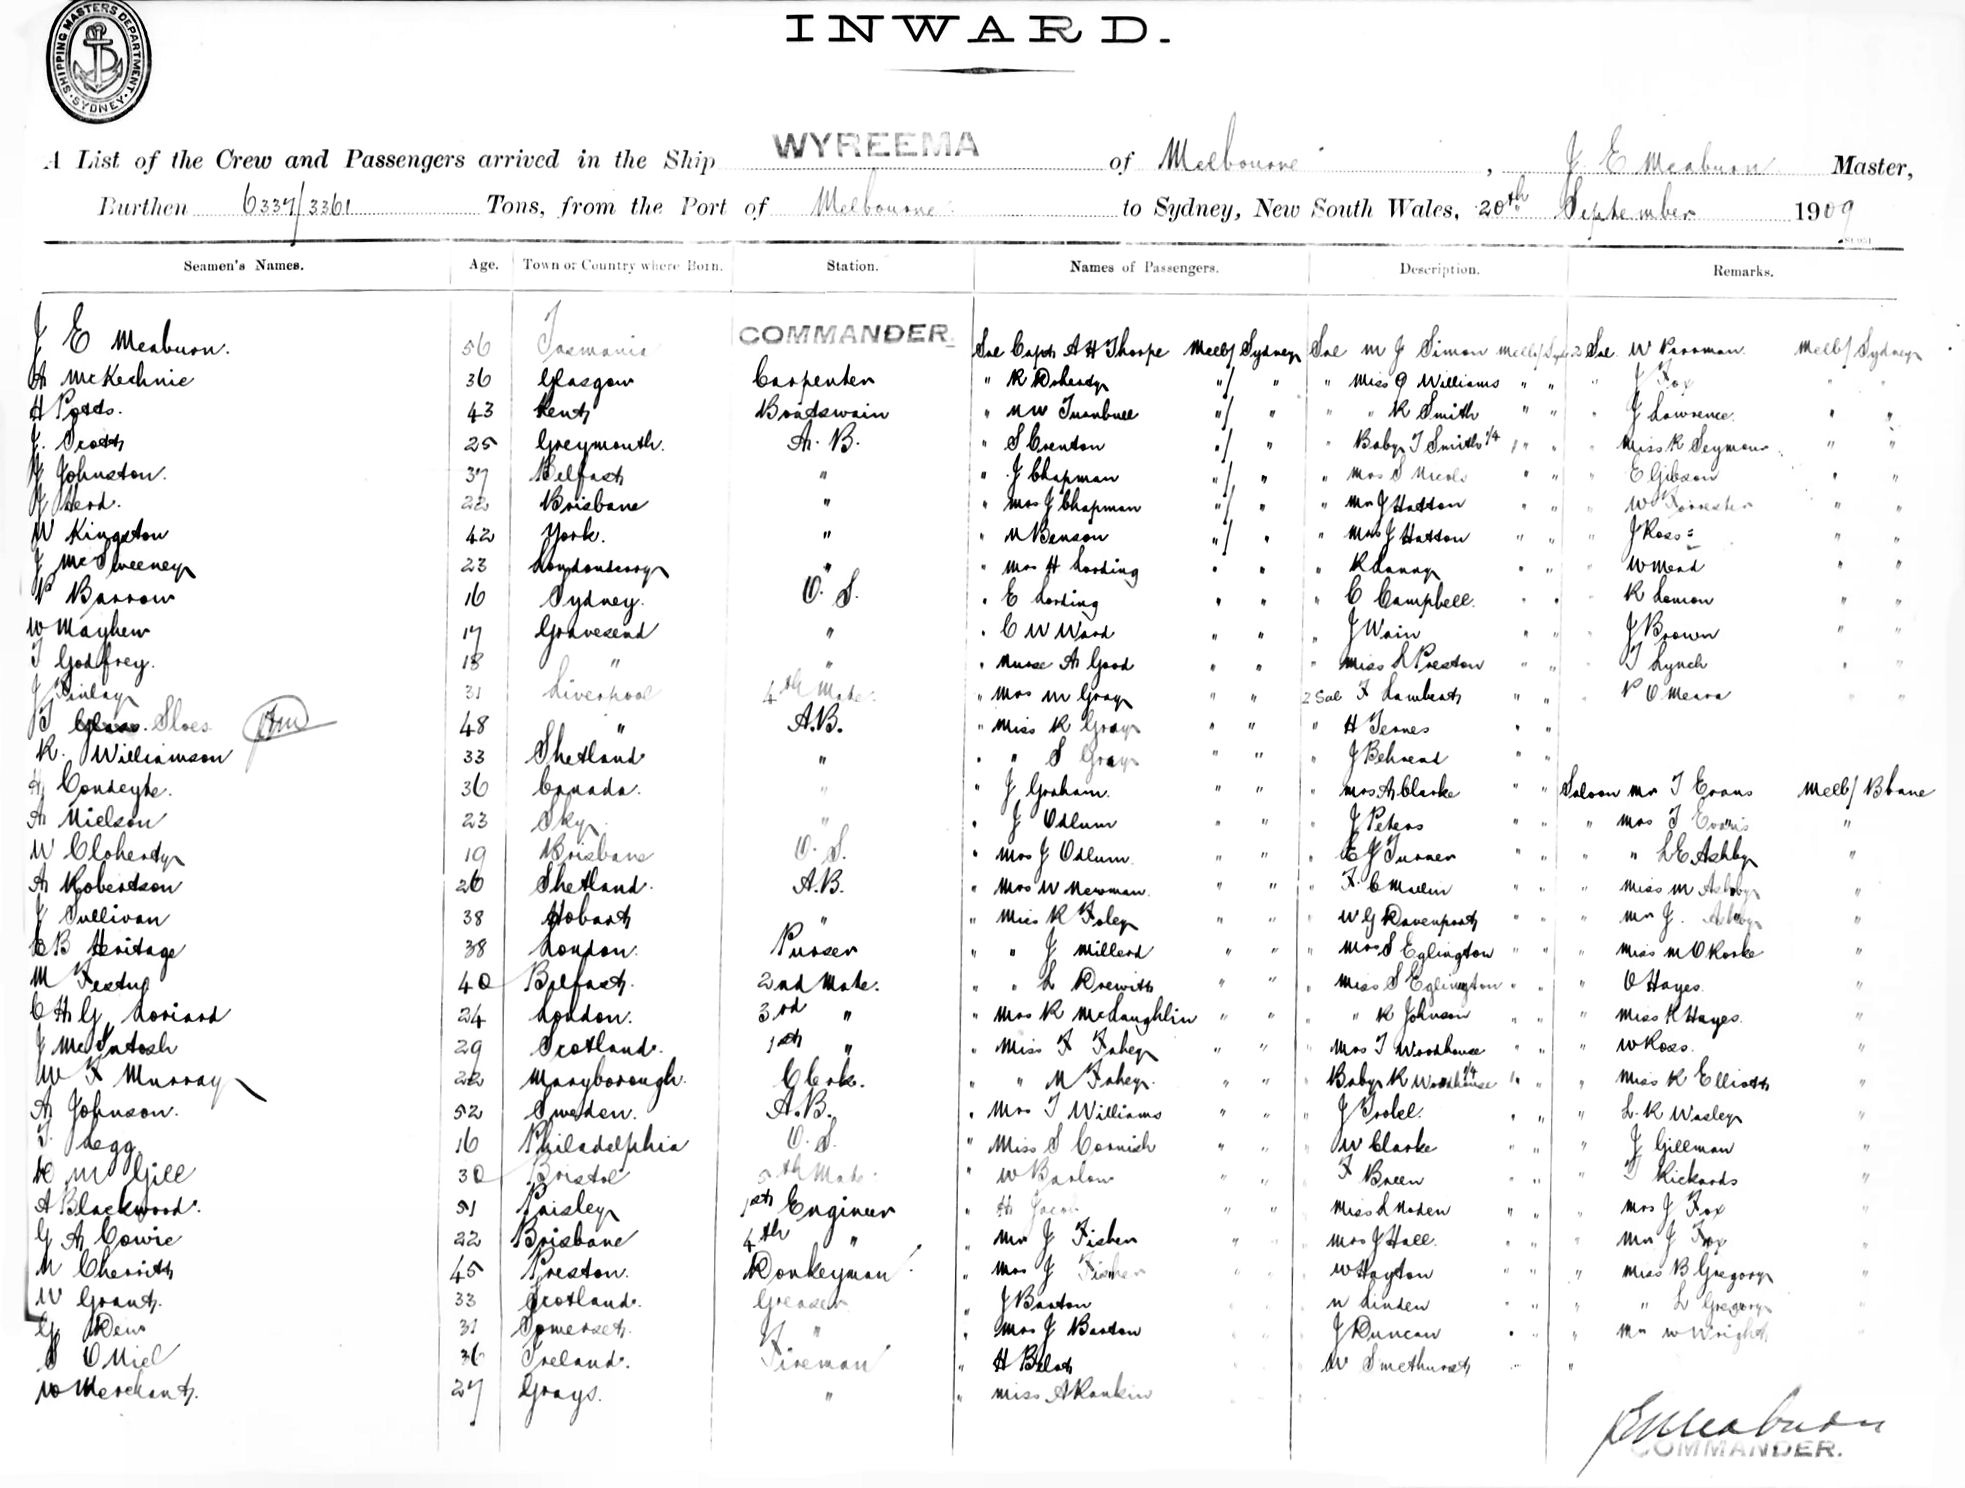 SHIPPING MASTERS DEPARTMENT. SYDNEY.
INWARD.
A List of the Crew and Passengers arrived in the Ship WYREEMA of Melbourne, J E Meaburn Master,
Burthen 6337/3361 Tons, from the Port of Melbourne to Sydney, New South Wales, 20th September 1909
Seamen's Names. Age. Town or Country where Born. Station. Names of Passengers. Description. Remarks.
J E Meaburn. 56 Tasmania COMMANDER. Sal Capt A H Thorpe Melb/ Sydney Sal M J Simon Melb/Syd 2 Sal W Melb/ Sydney
A McKechnie 36 Glasgow Carpenter " R Doherty "/ " " Miss Williams " " " J Fox " "
H Potts. 43 Kent Boatswain " M W Turnbull "/ " " " R Smith " " " J Lawrence. " "
J. Scott 25 Greymouth. A. B. " S Crenton "/ " " Baby T Smith 1/4 " " " Miss R Seymour " "
J Johnston. 37 Belfast " " J Chapman "/ " " Mrs S Nicols " " " E Gibson " "
J Herd. 22 Brisbane " " Mrs J Chapman "/ " " Mr J Hatton " " " W Forrester " "
W Kingston 42 York. " " M Benson "/ " " Mrs J Hatton " " " J Ross " "
J McSweeney 23 Londonderry " " Mrs H Lording " " " R Lanny " " " W Mead " "
P Barrow 16 Sydney. O. S. " E Lording " " " C Campbell. " " " R Lemon " "
W Mayhew 17 Gravesend " " C W Ward " " " J Wain " " " J Brown " "
T Godfrey. 18 " " " Nurse A Good " " " Miss L Preston " " " T Lynch " "
J Finlay 31 Liverpool 4th Mate. " Mrs M Gray " " 2 Sal F Lambert " " " P O Meara " "
T Sloes 48 " A.B. " Miss R Gray " " " H Ternes " "
R. Williamson 33 Shetland " " " S Gray " " " J Behrend " "
H Condeyte. 36 Canada. " " J Graham. " " " Mrs A Clarke " " Saloon Mr T Evans Melb/ Bbane
A Nielson 23 Skye " " J Odlum " " " J Peters " " " Mrs T Evans "
W Cloherty 19 Brisbane O. S. " Mrs J Odlum " " " E J Turner " " " " L E Ashby "
A Robertson 26 Shetland. A.B. " Mrs W Newman. " " " F C Mallin " " " Miss M Ashby "
J Sullivan 38 Hobart " " Miss R Foley " " " W G Davenport " " " Mr J. Ashby "
C B Heritage 38 London. Purser " " J Millerd " " " Mrs S Eglington " " " Miss M O Rorke "
M Festing 40 Belfast. 2nd Mate. " " L Drewitt " " " Miss S Eglington " " " O Hayes. "
C H G Loriard 24 London. 3rd " " Mrs R McLaughlin " " " " R Johnson " " " Miss R Hayes. "
J McIntosh 29 Scotland. 1st " " Miss F Fahey " " " Mrs T Woodhouse " " " W Ross. "
W F Murray 22 Maryborough. Clerk. " " M Fahey. " " Baby R Woodhouse 1/4 " " " Miss R Elliott "
A Johnson. 52 Sweden. A.B. " Mrs T Williams " " J Trobel. " " " L. R Wasley "
T. Legg 16 Philadelphia O. S. " Miss S Cornish " " W Clarke " " " J Gillman "
D McGill 30 Bristol 5th Mate. " W Barlow " " F Breen " " " T Rickards "
A Blackwood. 51 Paisley 1st Engineer " H Jacob " " Miss L Noden " " " Mrs J Fox "
G A Cowie 22 Brisbane 4th " " Mr J Fisher " " Mrs J Hall. " " " Mr J Fox "
M Cherritt 45 Preston. Donkeyman " Mrs J Fisher " " W Hayton " " " Miss B Gregory "
W Grant. 33 Scotland. Greaser " J Barton N Linden " " " " L Gregory "
G Dew 31 Somerset. " " Mrs J Barton J Duncan " " " Mr W Wright "
S O Niel 36 Ireland. Fireman " H Bilot W Smethurst " "
W Merchant. 27 Grays. " " Miss A Rankin
J E Meaburn
COMMANDER.